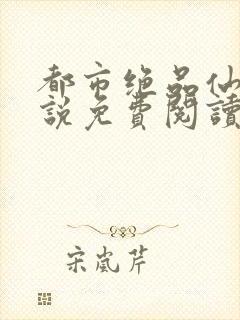 都市绝品仙
說免費閱讀
宋嵐芹